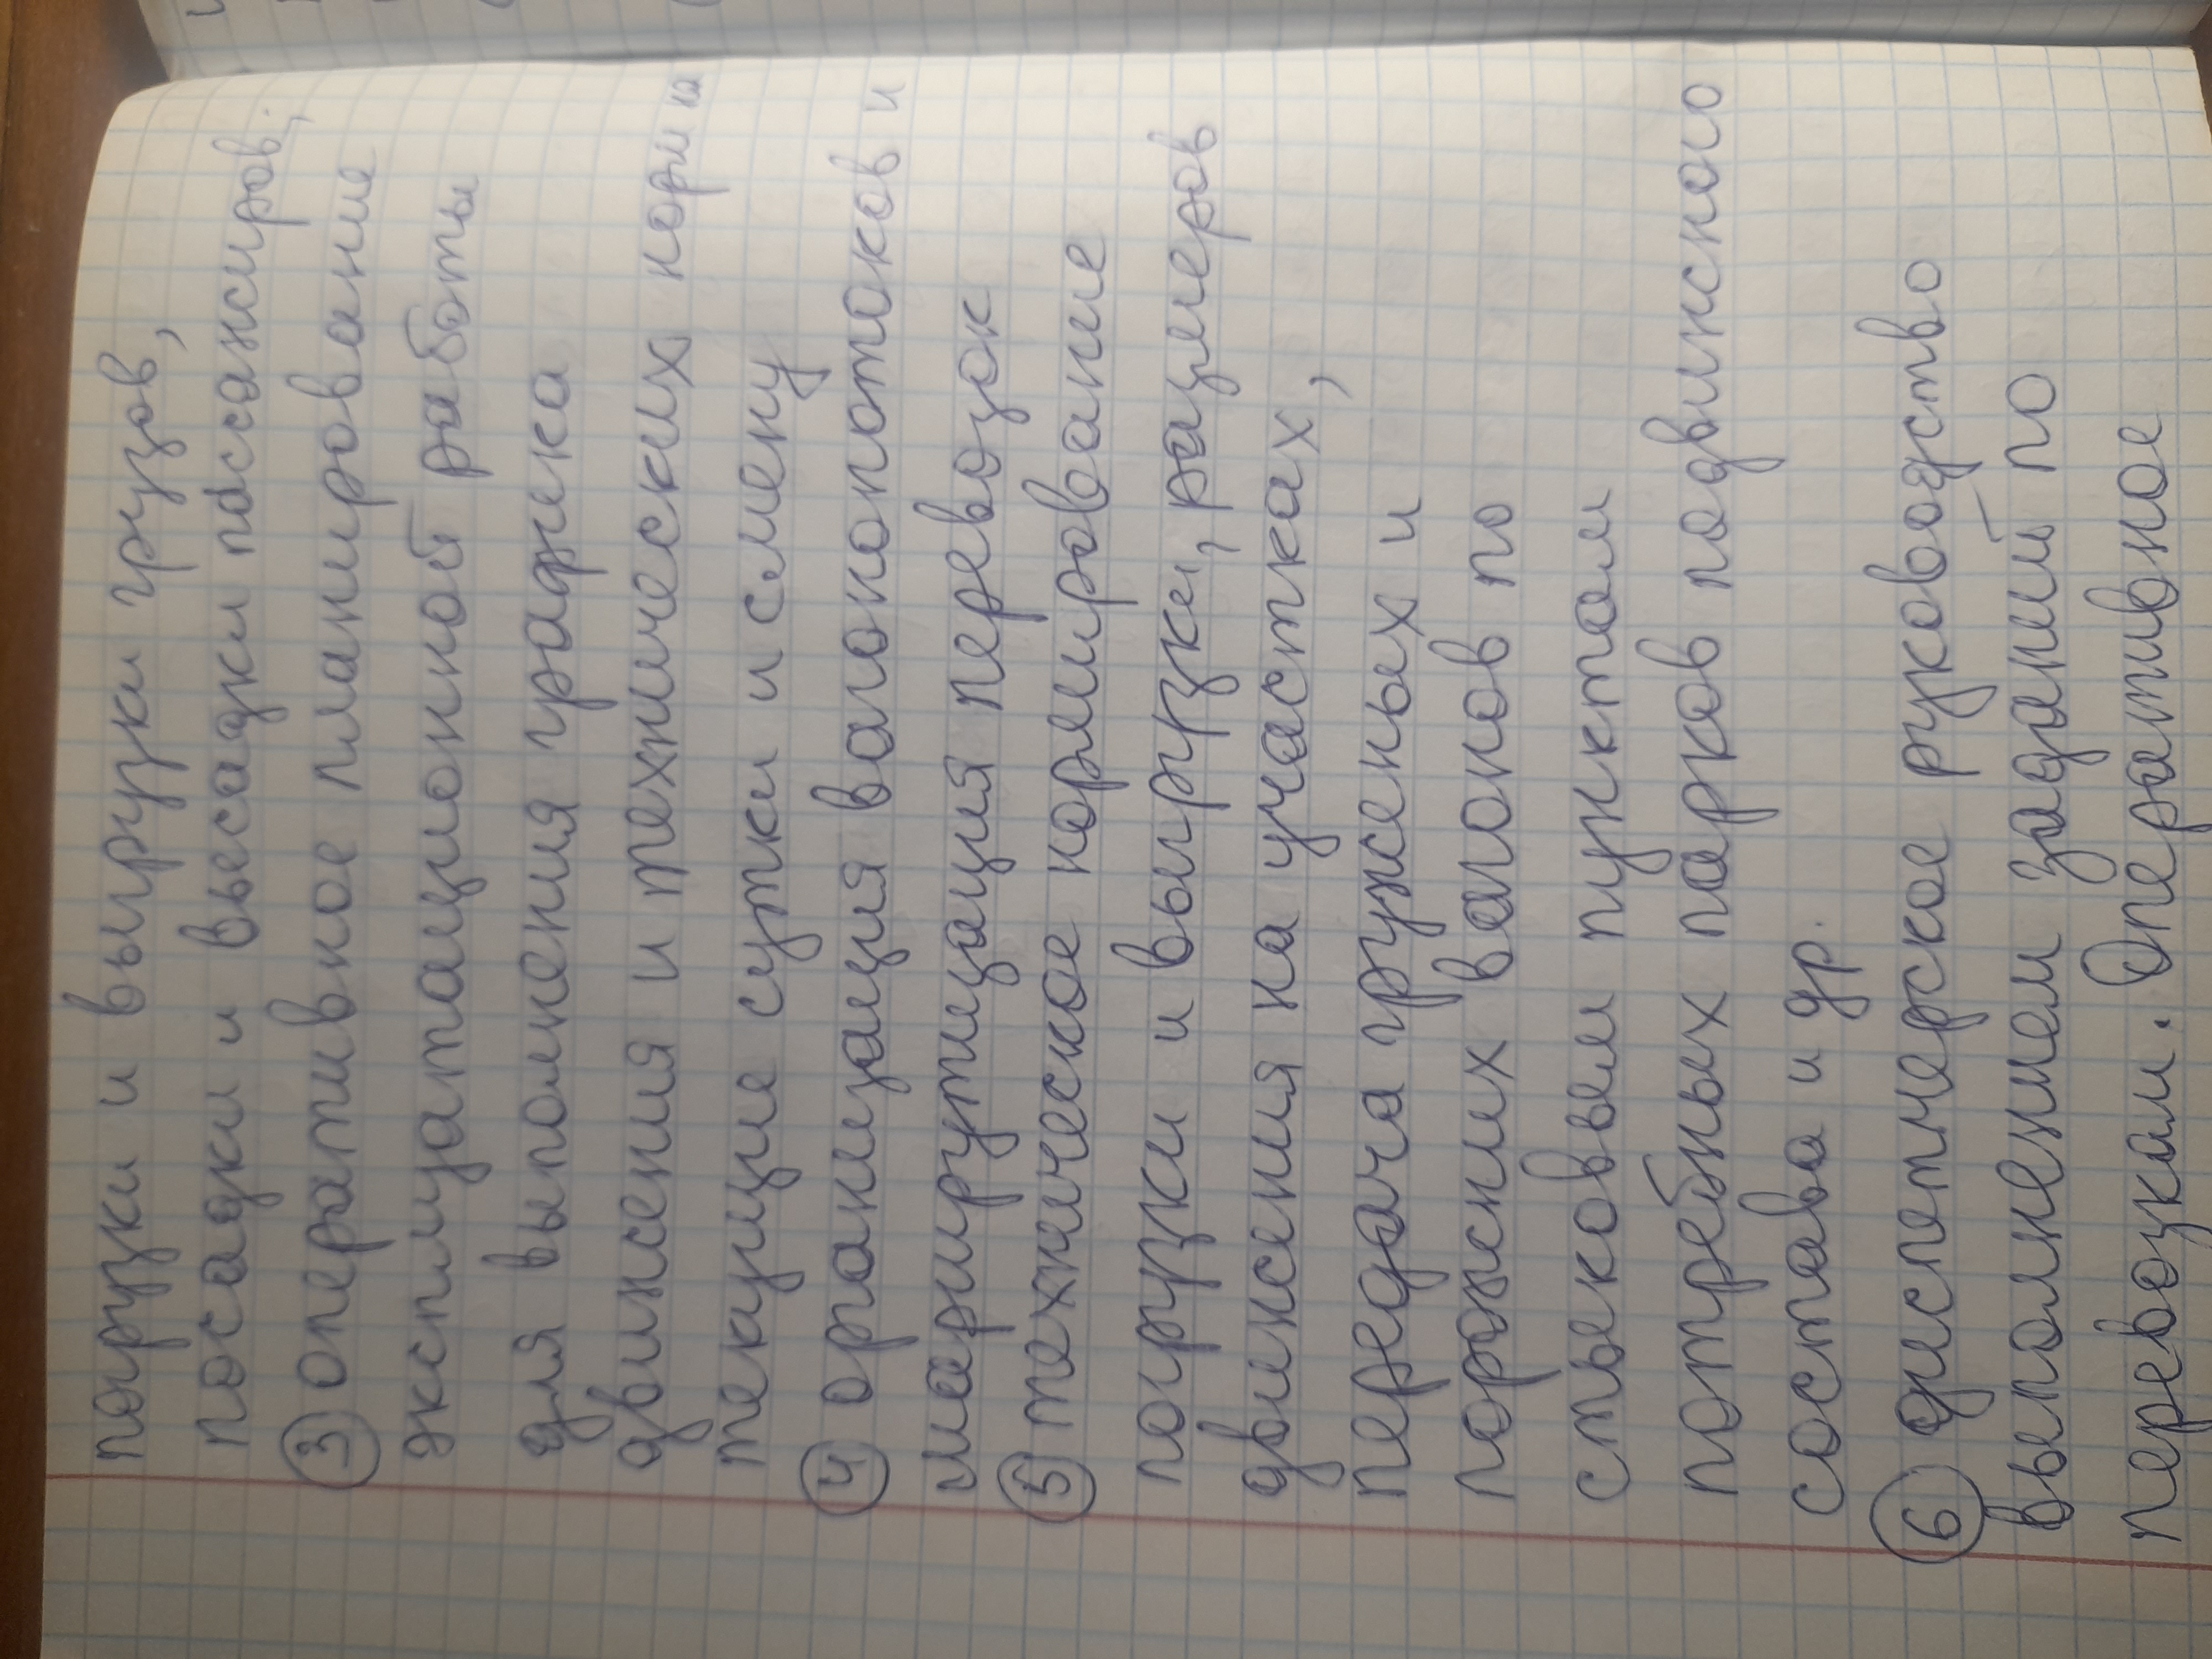 погрузки и выгрузки грузов,
посадки и высадки пассажиров;
③ оперативное планирование
эксплуатационной работы
для выполнения графика
движения и технических норм на
текущие сутки и смену
④ организация вагонопотоков и
маршрутизация перевозок
⑤ техническое нормирование
погрузки и выгрузки, размеров
движения на участках,
передача груженых и
порожних вагонов по
стыковым пунктам
потребных парков подвижного
состава и др.
⑥ диспетчерское руководство
выполнением заданий по
перевозкам. Оперативное